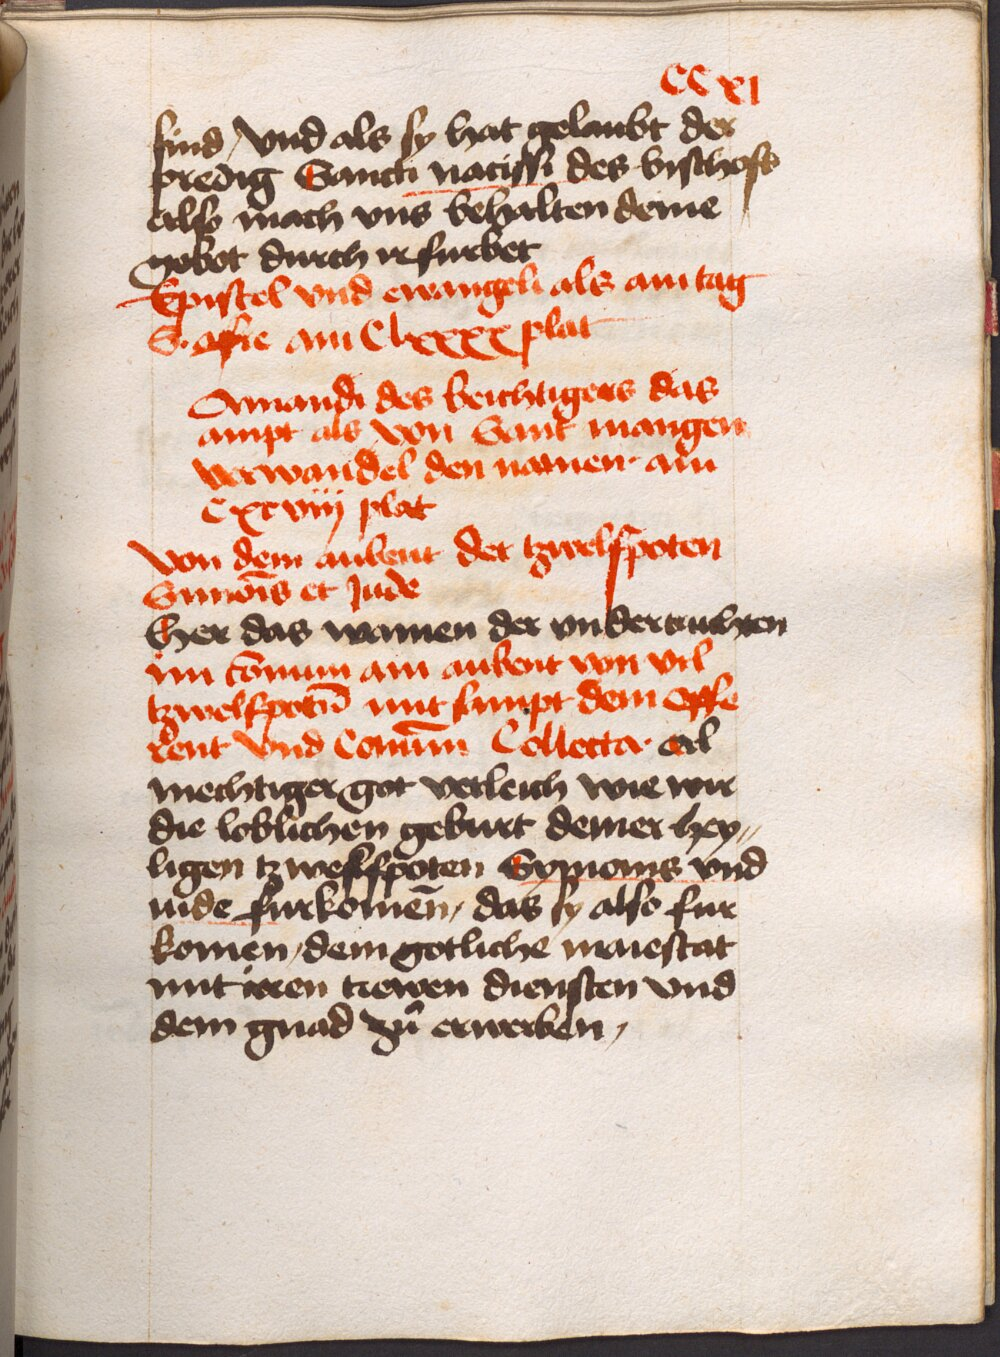 CCxi
sind / vnd als sy hat gelaubt der
predig Sancti narissi des bischofs
also mach vns behalten deine
gebot durch ir furbet
Epistel vnd ewangeli als am tag
S. afre am Clxxxx plat
Amandi des beichtigers das
ampt als von Sant mangen
verwandel den namen am
Cxcviij plat
von dem aubent der tzwelfpoten
Simōis et Jude
Her das wainen der vndertruchten
im cōmun am aubent von vil
tzwelfpotñ mit sampt dem offe
rent vnd Comūn Collecta al
mechtiger got verleich wie wir
die loblichen geburt deiner hey//
ligen tzwelfpoten Symonis vnd
iude furkomēn, das sy also fur
komen, dein gotliche maiestat
mit iren trewen diensten vnd
dein gnad zů erwerben,